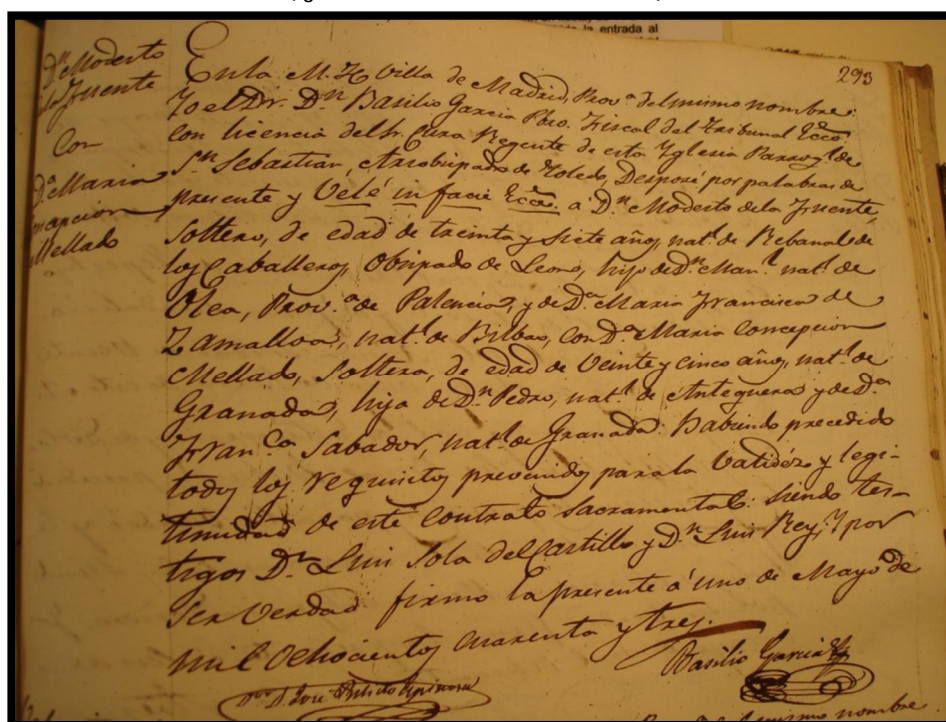 la entrada al
293
Dn. Modesto
de la Fuente
Con
Da. Maria
Concepcion
Mellado
En la M. H. Villa de Madrid, Prova. del mismo nombre:
Yo el Dr. Dn. Basilio Garcia Pbro. Fiscal del Tribunal Ecco.
con licencia del Sr. Cura Regente de esta Yglesia Parroql. de
Sn. Sebastian, Arzobispado de Toledo, Desposé por palabras de
presente y Velé in facie Ecce. a Dn. Modesto de la Fuente,
Soltero, de edad de treinta y siete años, natl. de Rebanal de
los Caballeros, Obispado de Leon, hijo de Dn. Manl. natl. de
Olea, Prov.a de Palencia, y de Da. Maria Francisca de
Zamalloa, natl. de Bilbao, con Da. Maria Concepcion
Mellado, Soltera, de edad de Veinte y cinco años, natl. de
Granada, hija de Dn. Pedro, natl. de Antequera y de Da.
Fran.ca Sabador, natl. de Granada: Habiendo precedido
todos los requisitos prevenidos para la Validéz y legi-
timidad de este Contrato Sacramental: siendo tes-
tigos Dn. Luis Sola del Castillo y Dn. Luis Rey, Y por
ser Verdad firmo la presente á uno de Mayo de
mil Ochocientos cuarenta y tres.
Basilio Garcia
Dor. D. José Espinosa
mismo nombre